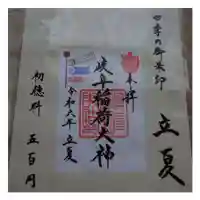 四季の御朱印
立夏
奉拝
岐阜稲荷大神
令和六年立夏
初穂料
五百円